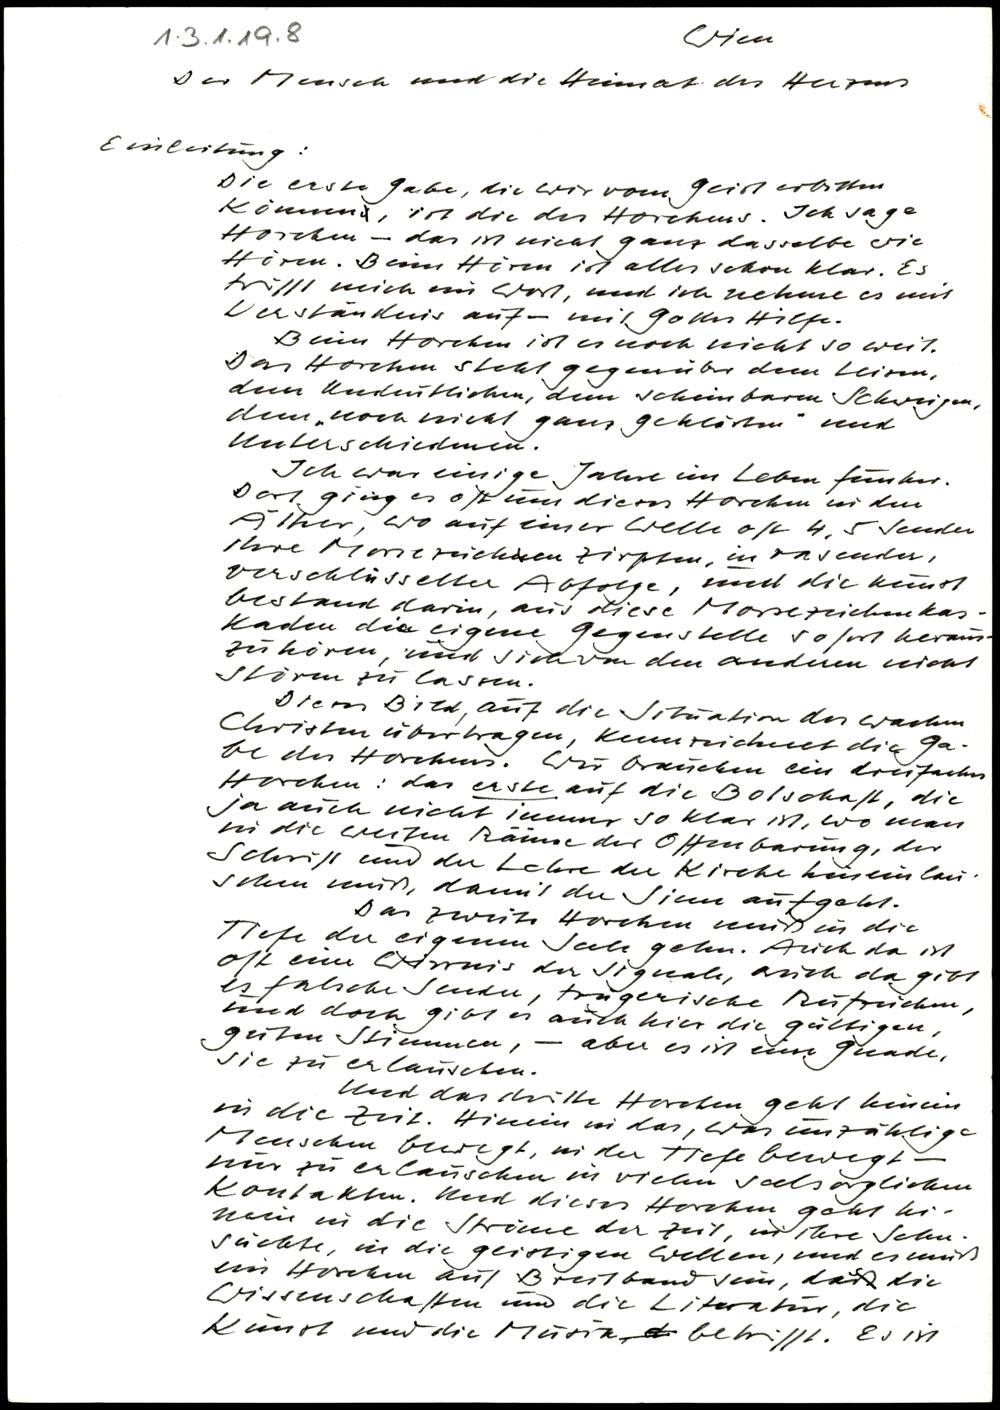 1.3.1.19.8
Wien
Der Mensch und die Heimat des Herzens
Einleitung:
Die erste Gabe, die wir vom Geist erbitten
können, ist die des Horchens. Ich sage
Horchen – das ist nicht ganz dasselbe wie
Hören. Beim Hören ist alles schon klar. Es
trifft mich ein Wort, und ich nehme es mit
Verständnis auf – mit Gottes Hilfe.
Beim Horchen ist es noch nicht so weit.
Das Horchen steht gegenüber dem Leisen,
dem Undeutlichen, dem scheinbaren Schweigen,
dem „noch nicht ganz Geklärten" und
Unterschiedenen.
Ich war einige Jahre im Leben Funker.
Dort ging es oft um dieses Horchen in den
Äther, wo auf einer Welle oft 4, 5 Sender
ihre Morsezeichen zirpten, in rasender,
verschlüsselter Abfolge, und die Kunst
bestand darin, aus diese Morsezeichenkas-
kaden die eigene Gegenstelle sofort heraus-
zuhören, und sich von den anderen nicht
stören zu lassen.
Dieses Bild, auf die Situation des wachen
Christen übertragen, kennzeichnet die Ga-
be des Horchens. Wir brauchen ein dreifaches
Horchen: das erste auf die Botschaft, die
ja auch nicht immer so klar ist, wo man
in die weiten Räume der Offenbarung, der
Schrift und der Lehre der Kirche hineinlau-
schen muß, damit der Sinn aufgeht.
Das zweite Horchen muß in die
Tiefe der eigenen Seele gehn. Auch da ist
oft eine Wirrnis der Signale, auch da gibt
es falsche Sender, trügerische Rufzeichen,
und doch gibt es auch hier die gültigen,
guten Stimmen, – aber es ist eine Gnade,
sie zu erlauschen.
Und das dritte Horchen geht hinein
in die Zeit. Hinein in das, was unzählige
Menschen bewegt, in der Tiefe bewegt –
nur zu erlauschen in vielen seelsorglichen
Kontakten. Und dieses Horchen geht hi-
nein in die Ströme der Zeit, in ihre Sehn-
süchte, in die geistigen Wellen, und es muß
ein Horchen auf Breitband sein, das die
Wissenschaften und die Literatur, die
Kunst und die Musik betrifft. Es ist